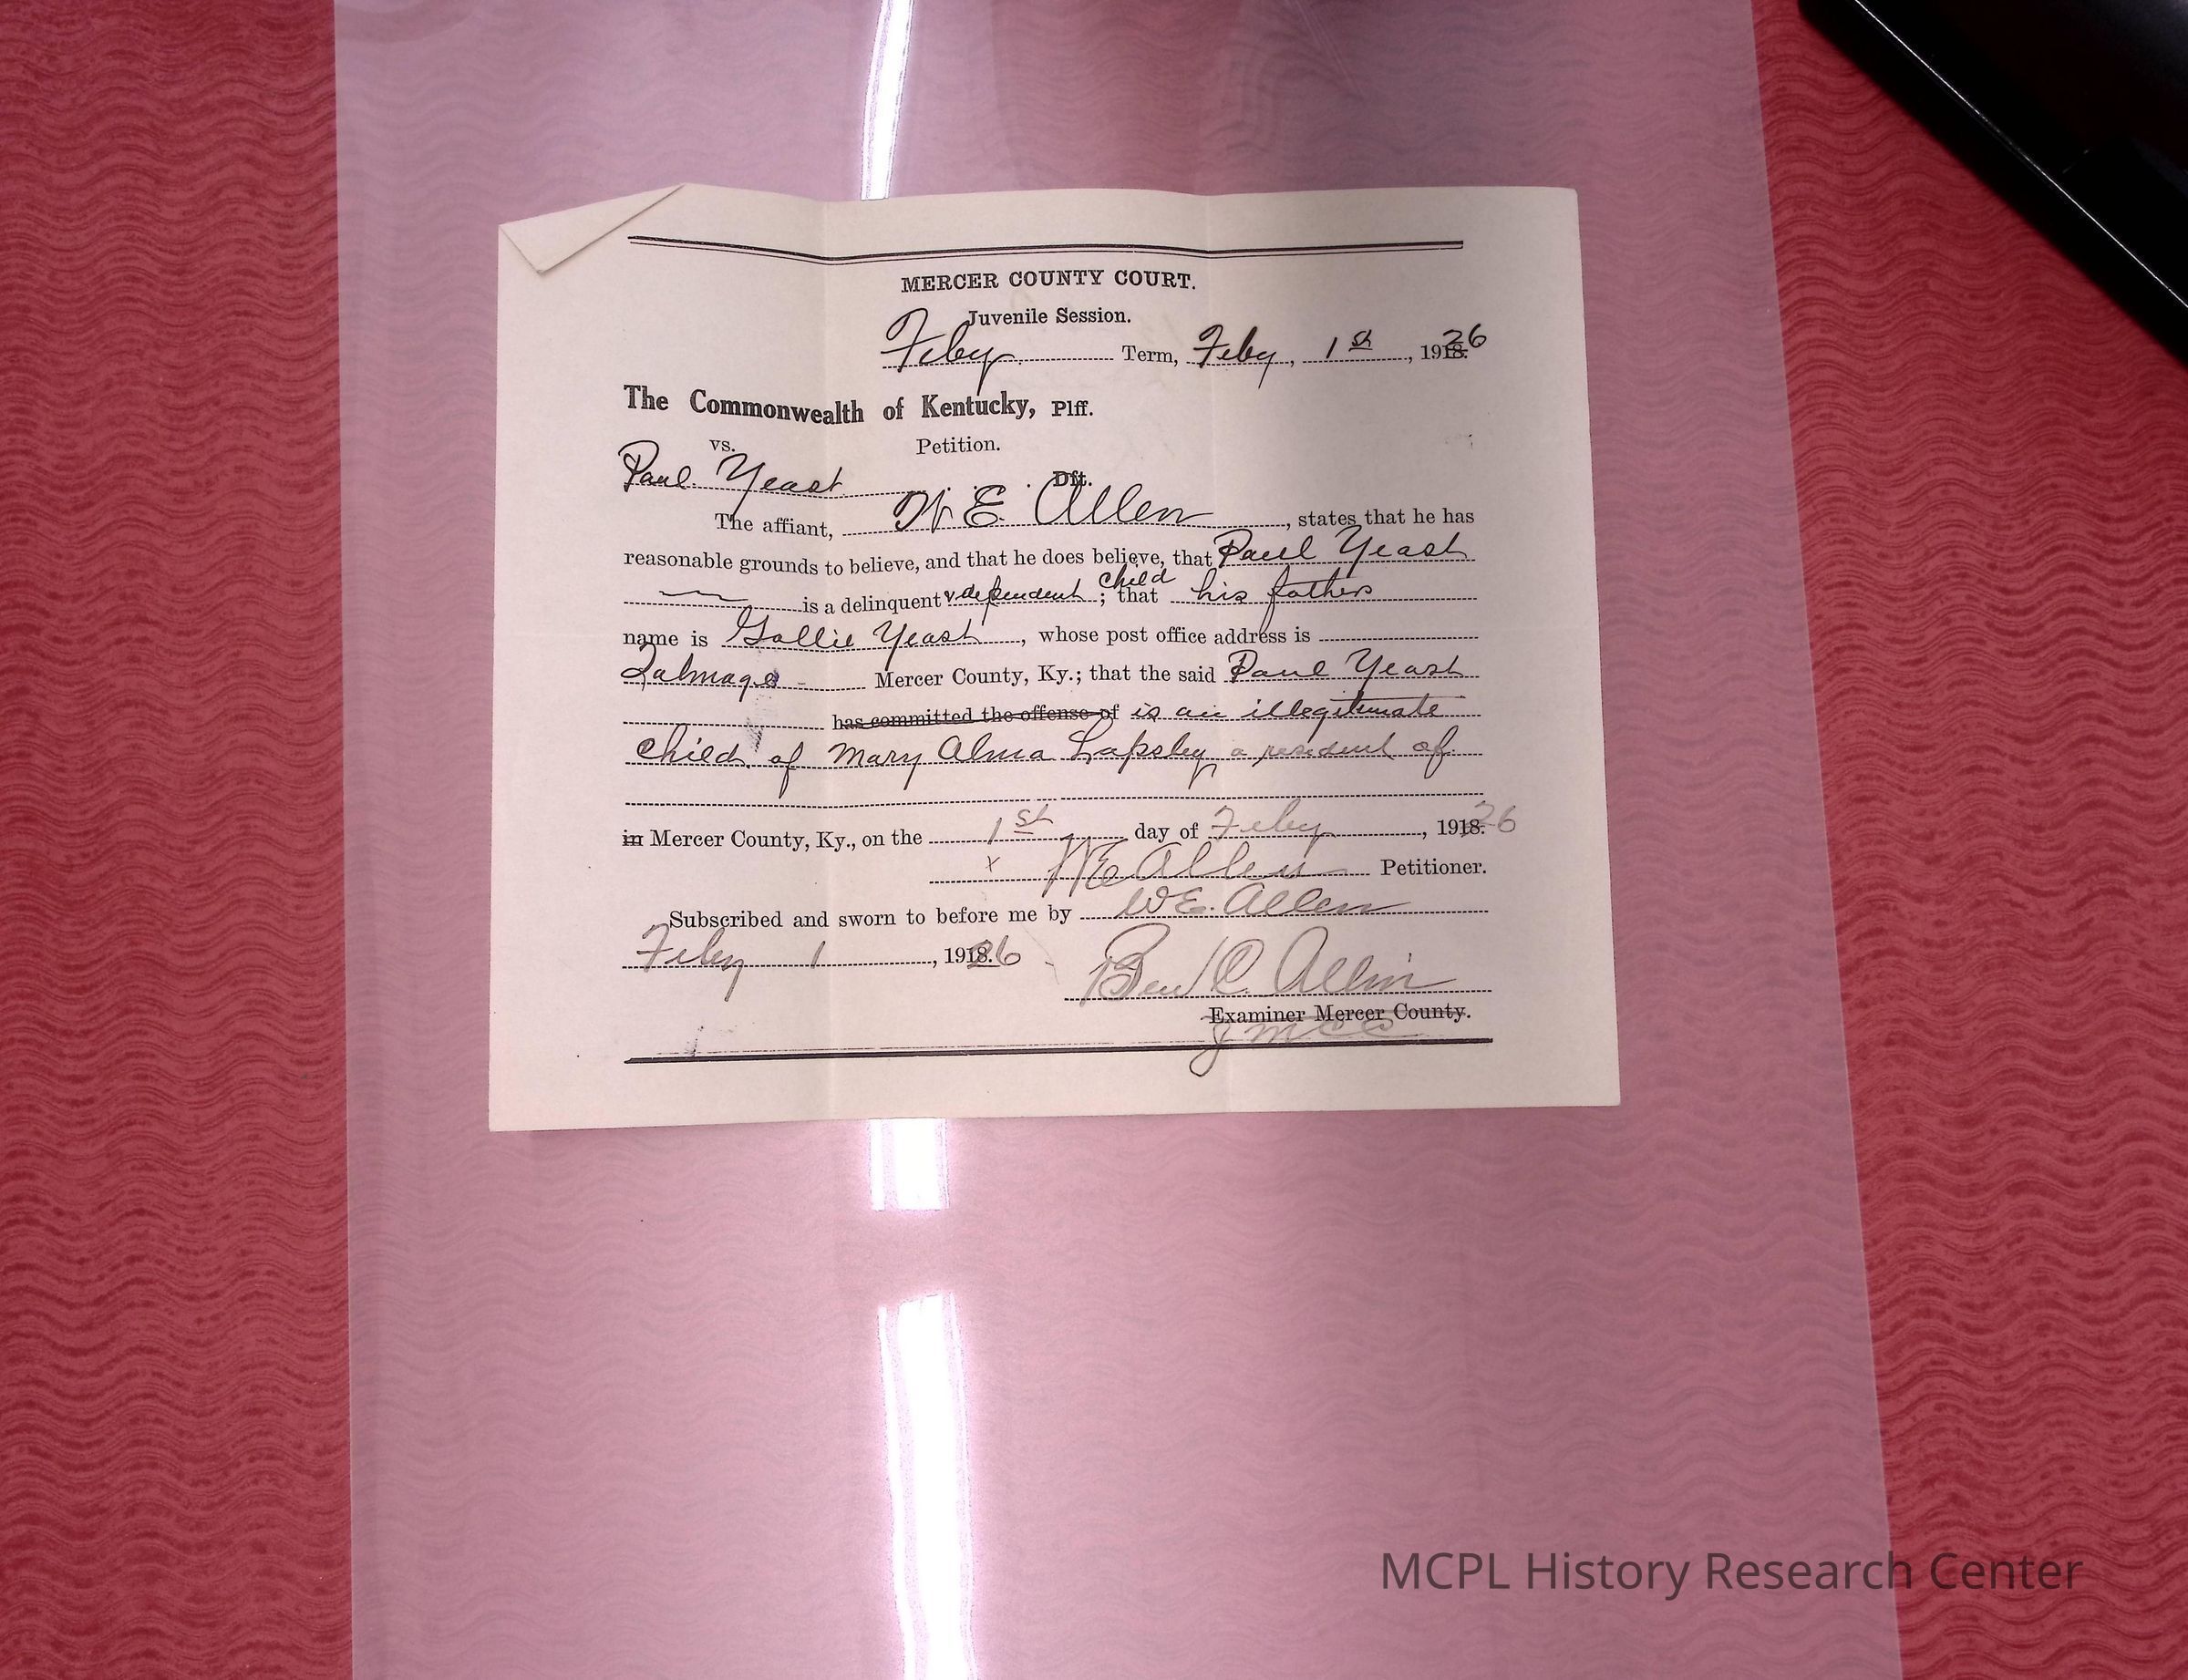 MERCER COUNTY COURT.
Juvenile Session.
Feby Term, Feby, 1st, 1918. 26
The Commonwealth of Kentucky, Plff.
vs. Petition.
Paul Yeast Dft.
The affiant, W E. Allen, states that he has
reasonable grounds to believe, and that he does believe, that Paul Yeast
is a delinquent & dependent child; that his fathers
name is Gollie Yeast, whose post office address is
Talmage Mercer County, Ky.; that the said Paul Yeast
has committed the offense of is an illegitimate
child of Mary Alma Lapsley a resident of
in Mercer County, Ky., on the 1st day of Feby, 1918. 26
x WE Allen Petitioner.
Subscribed and sworn to before me by WE. Allen
Feby 1, 1918. 26
Ben C. Allin
Examiner Mercer County.
J M C C
MCPL History Research Center